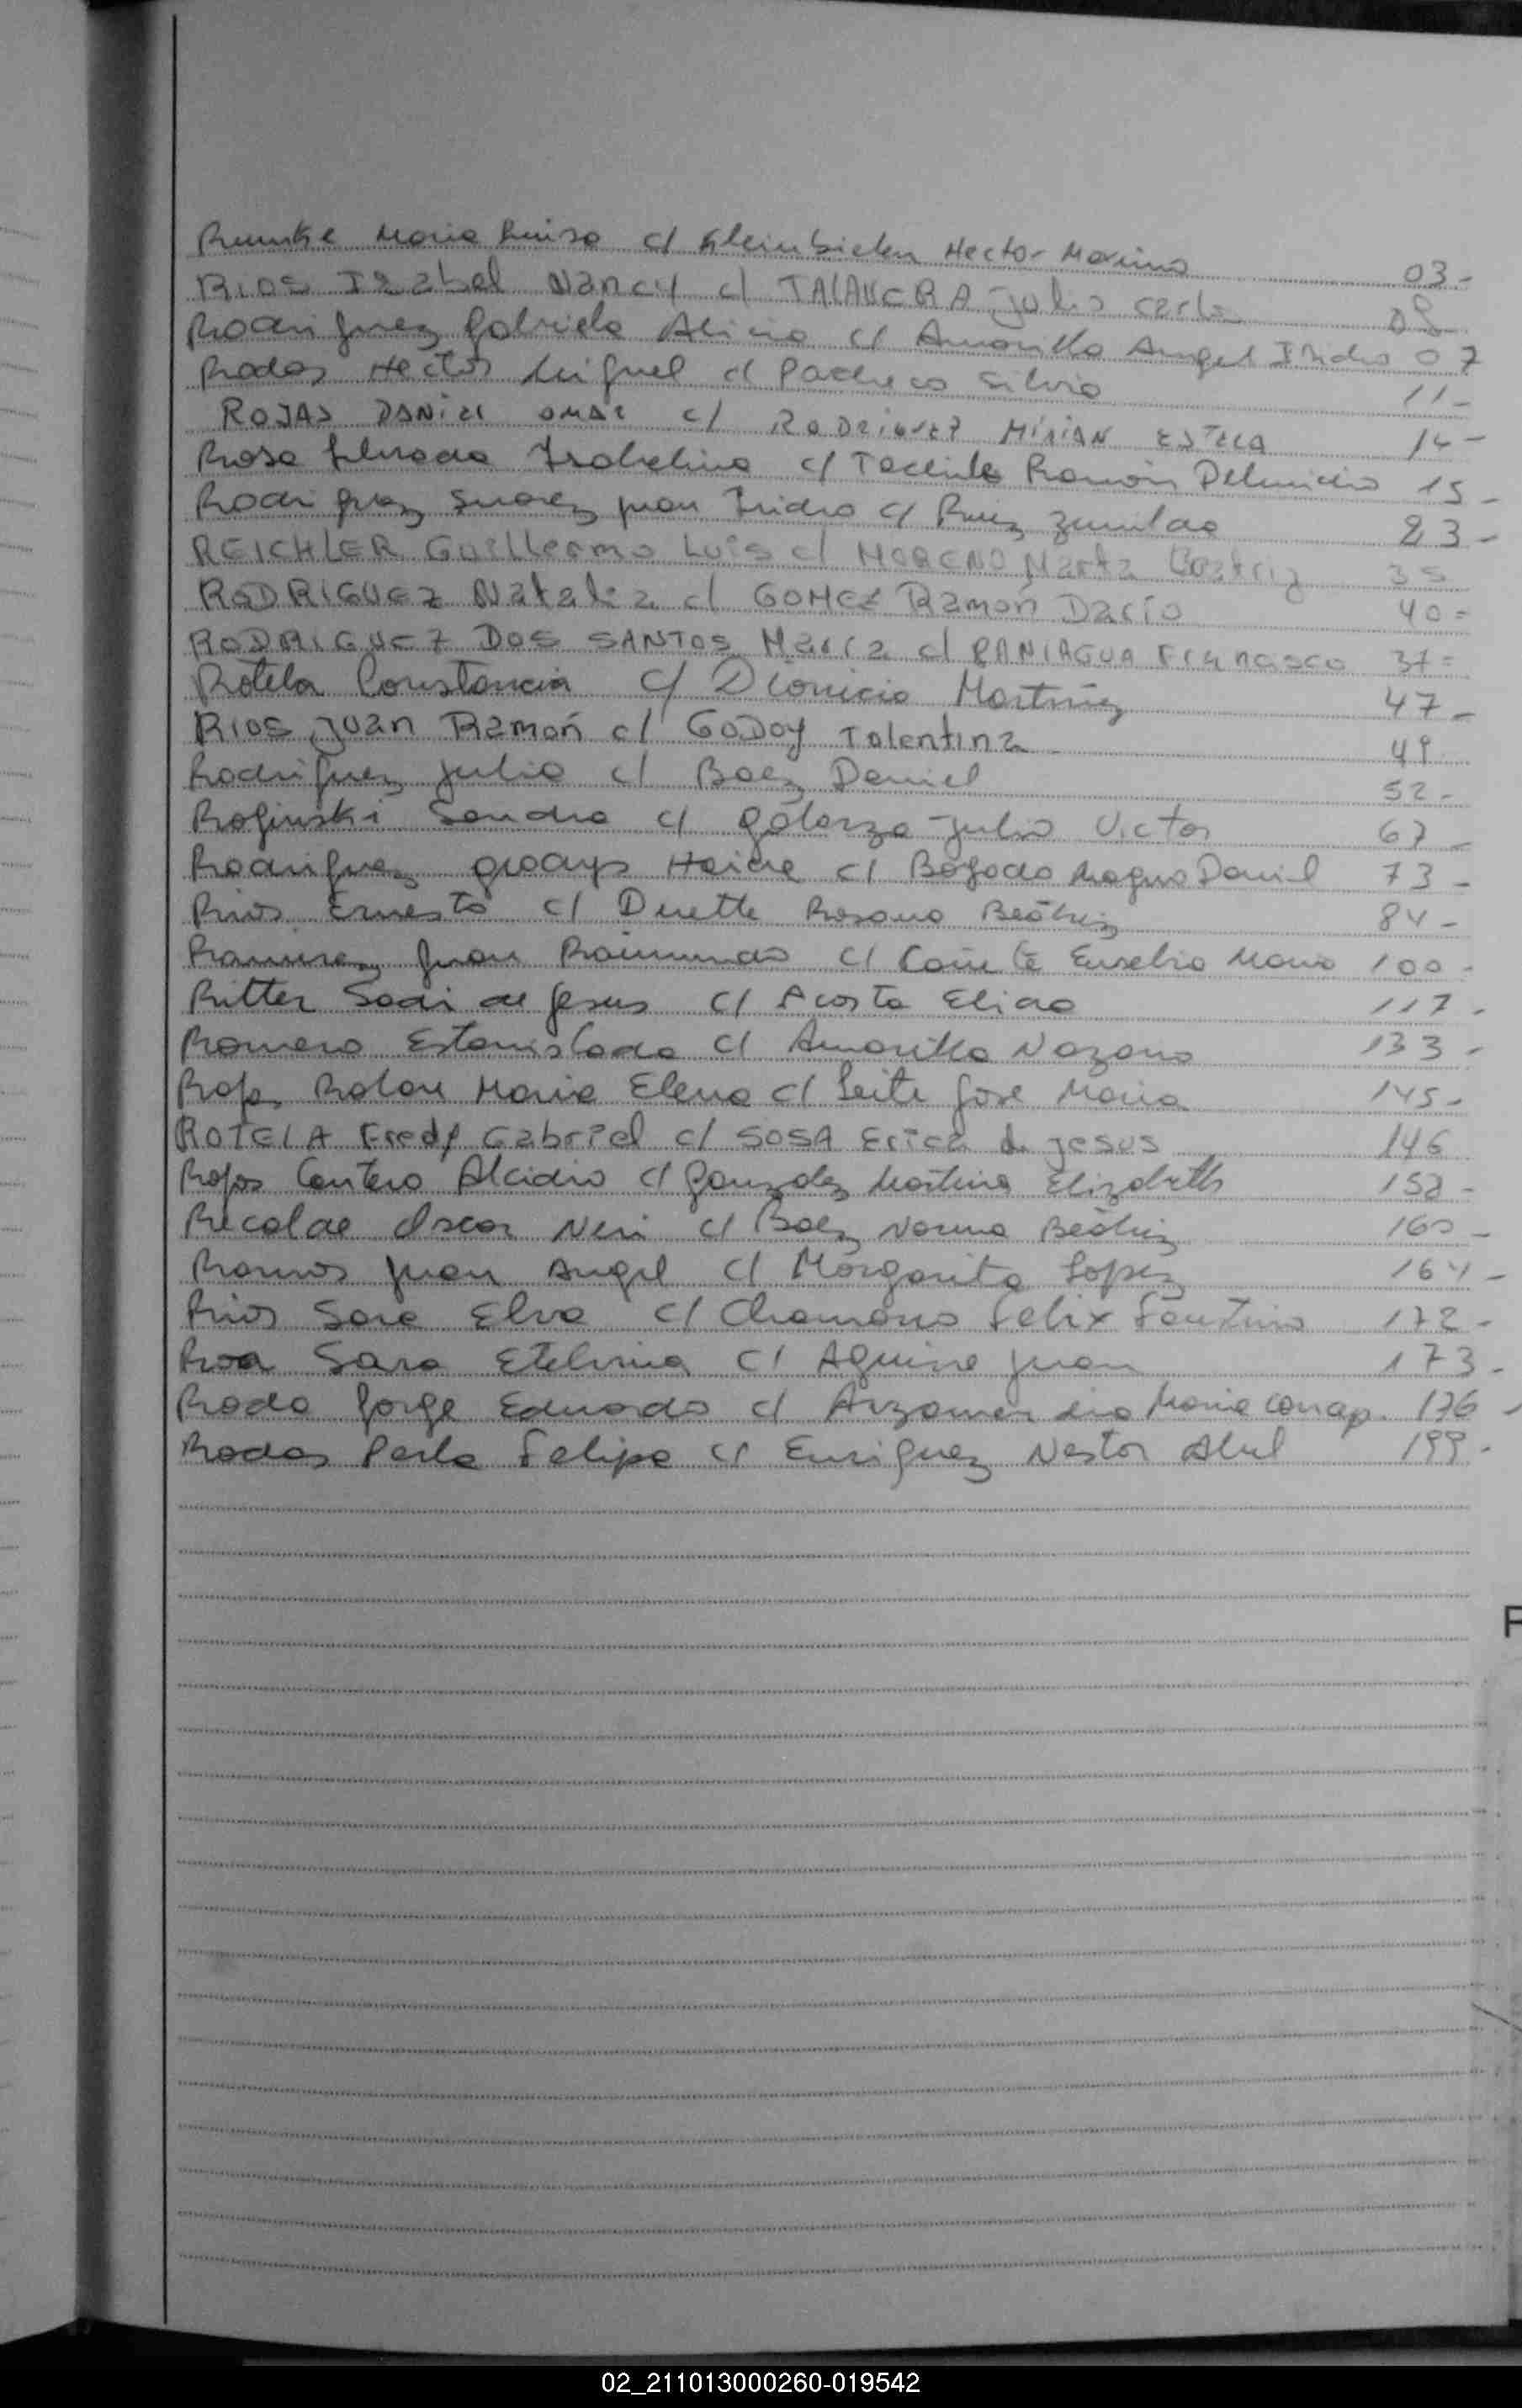 Maria Luisa c/ Hector Maximo 03-
RIOS Isabel Nancy c/ TALAVERA Julio Carlos 08
Rodriguez Gabriela Alicia c/ Amarilla Angel Isidro 07
Rodas Hector Miguel c/ Pacheco Silvia 11-
ROJAS DANIEL OMAR c/ RODRIGUEZ MIRIAN ESTELA 14-
Rosa c/ Ramón 15-
Rodriguez Suarez Juan Isidro c/ Zunilda 23-
REICHLER Guillermo Luis c/ MORENO Marta Beatriz 35
RODRIGUEZ Natalia c/ GOMEZ Ramón Dario 40=
RODRIGUEZ DOS SANTOS Maria c/ PANIAGUA Francisco 37=
Rotela Constancia c/ Dionicio Martinez 47-
RIOS Juan Ramón c/ GODOY Talentina 49
Rodriguez Julia c/ Baez Daniel 52-
Roginski Sandra c/ Galarza Julio Victor 67-
Rodriguez Gladys Haide c/ Bogado Magno Daniel 73-
Rios Ernesto c/ Duette Rosana Beatriz 84-
Ramirez Juan Raimundo c/ Eusebia Maria 100-
Ritter Sadi de Jesus c/ Acosta Elida 117-
Romero Estanislada c/ Amarilla Nazario 133-
Rojas Rolon Maria Elena c/ Leite Jose Maria 145-
ROTELA Fredy Gabriel c/ SOSA Erica de Jesus 146
Rojas Cantero Alcidio c/ Gonzalez Martina Elizabeth 152-
Recalde Oscar Neri c/ Baez Norma Beatriz 160-
Ramos Juan Angel c/ Margarita Lopez 164-
Rios Sara Elva c/ Chamorro Felix Faustino 172-
Roa Sara Etelvina c/ Aquino Juan 173-
Roda Jorge Eduardo c/ Arzamendia Maria Concep. 176-
Rodas Perla Felipa c/ Enriquez Nestor Abel 199-
02_211013000260-019542